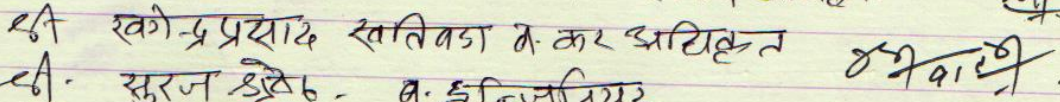 श्री खगेन्द्र प्रसाद खतिवडा व. कर अधिकृत
श्री. सुरज श्रेष्ठ - व. इन्जिनियर